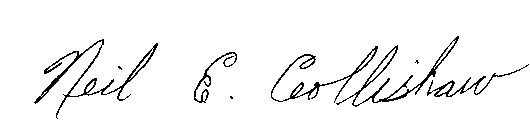 Neil E. Collishaw